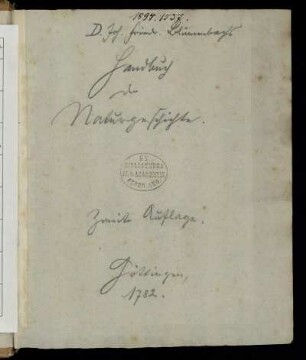 1894.1537.
D. Joh. Friedr. Blumenbachs
Handbuch
der
Naturgeschichte.
Zweite Auflage.
Göttingen,
1782.